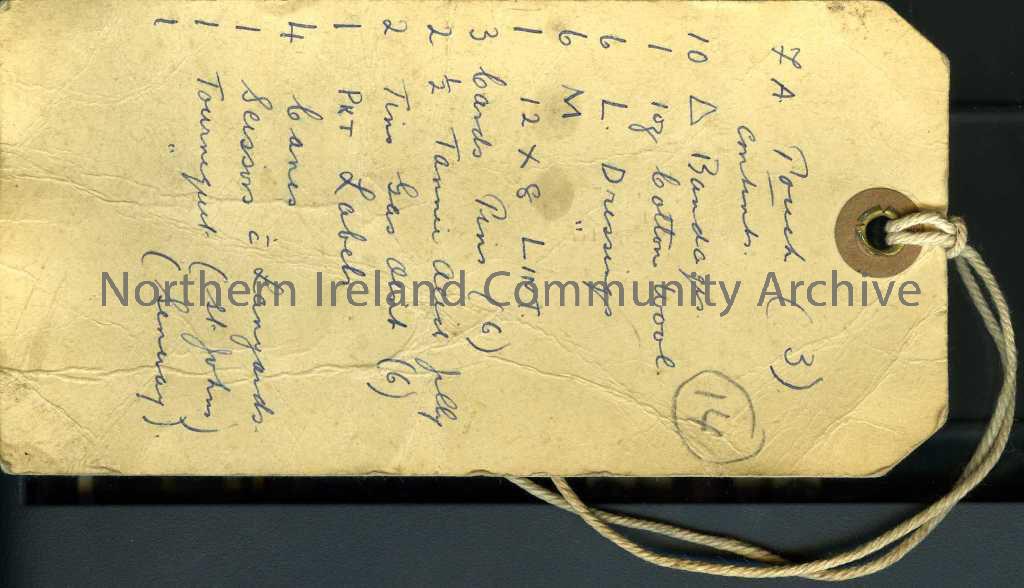 7A. Pouch (3)
Contents.
10 △ Bandages.
1 10g Cotton Wool.
6 L. Dressings
6 M "
1 12 x 8 LINT.
3 Cards Pins (6)
2 ½ Tannic Acid Jelly
2 Tins Gas (6)
1 PKT Labels
4 Canes
1 Scissors c̄ Lanyards.
1 Tourniquet. (St Johns)
1 " ( )
14
Northern Ireland Community Archive